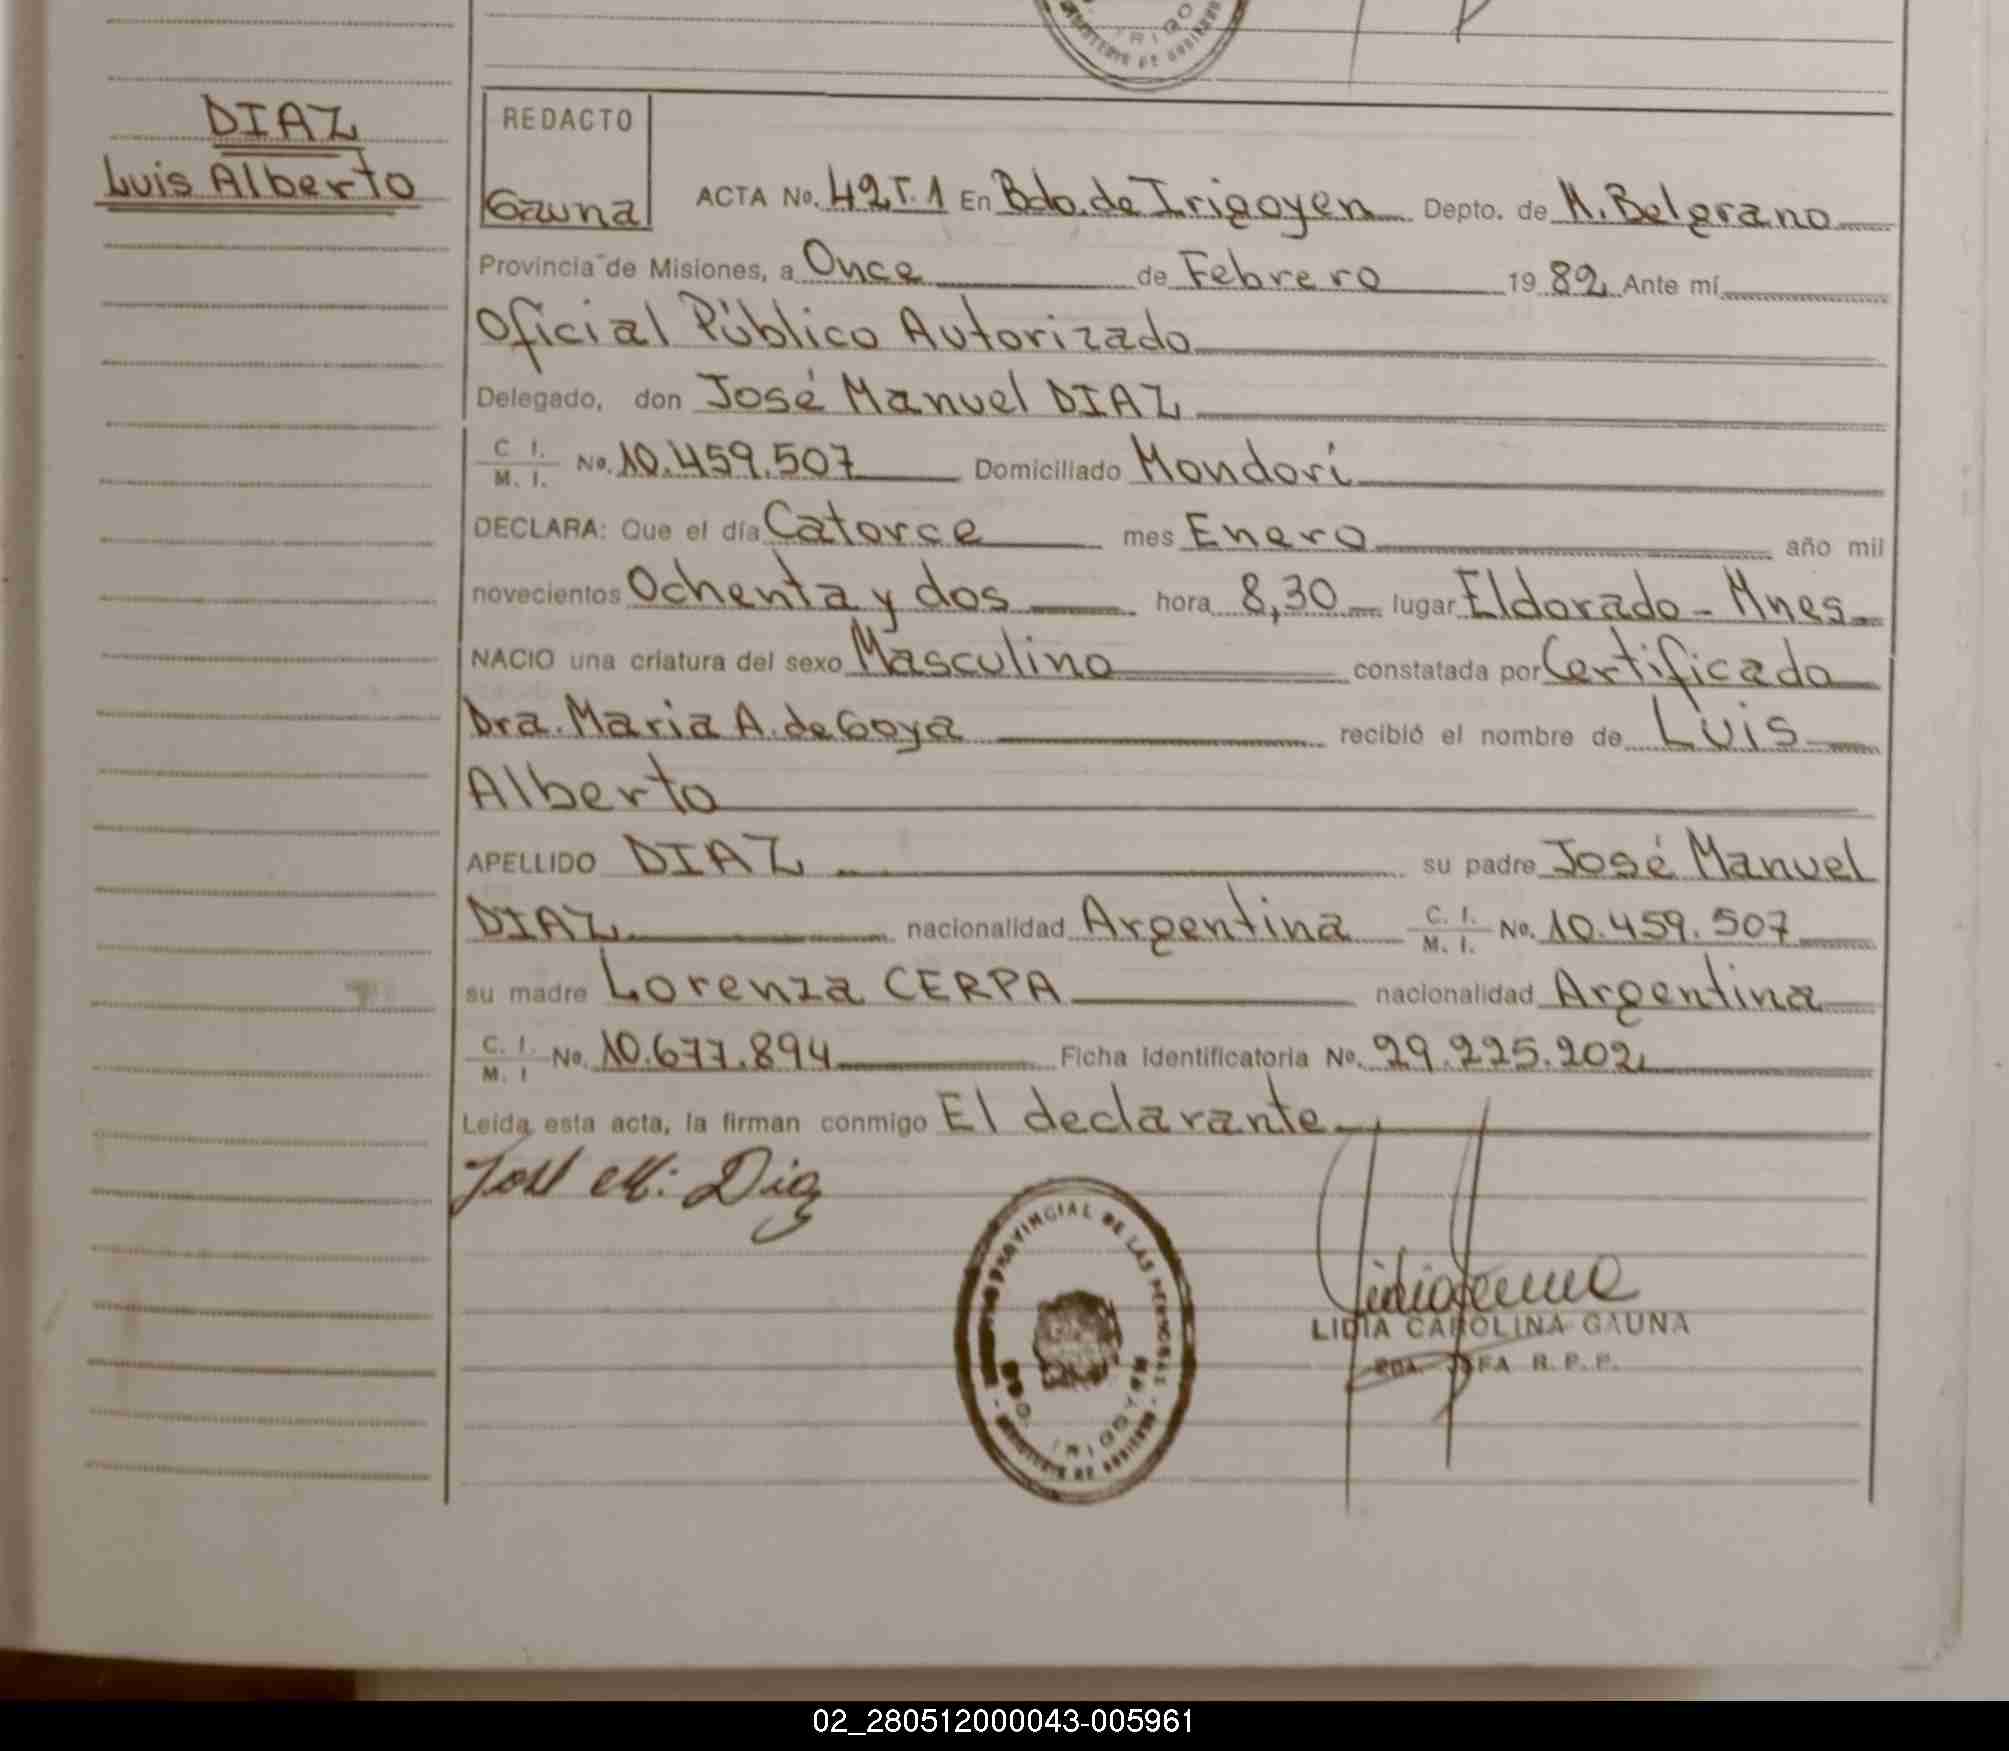 DIAZ
Luis Alberto
REDACTO
Gauna
ACTA No. 42 T. 1 En Bdo. de Irigoyen Depto. de M. Belgrano
Provincia de Misiones, a Once de Febrero 1982 Ante mí
Oficial Público Autorizado
Delegado, don José Manuel DIAZ
C. I. / M. I. No. 10.459.507 Domiciliado Mondori
DECLARA: Que el día Catorce mes Enero año mil
novecientos Ochenta y dos hora 8,30 lugar Eldorado - Mnes
NACIO una criatura del sexo Masculino constatada por Certificado
Dra. Maria A. de Goya recibió el nombre de Luis
Alberto
APELLIDO DIAZ su padre José Manuel
DIAZ nacionalidad Argentina C. I. / M. I. No. 10.459.507
su madre Lorenza CERPA nacionalidad Argentina
C. I. / M. I No. 10.677.894 Ficha identificatoria No. 29.225.202
Leída esta acta, la firman conmigo El declarante
José M. Diaz
PROVINCIAL DE LAS PERSONAS
BDO. IRIGOYEN
MINISTERIO DE GOBIERNO
LIDIA CAROLINA GAUNA
JEFA R. P. P.
02_280512000043-005961